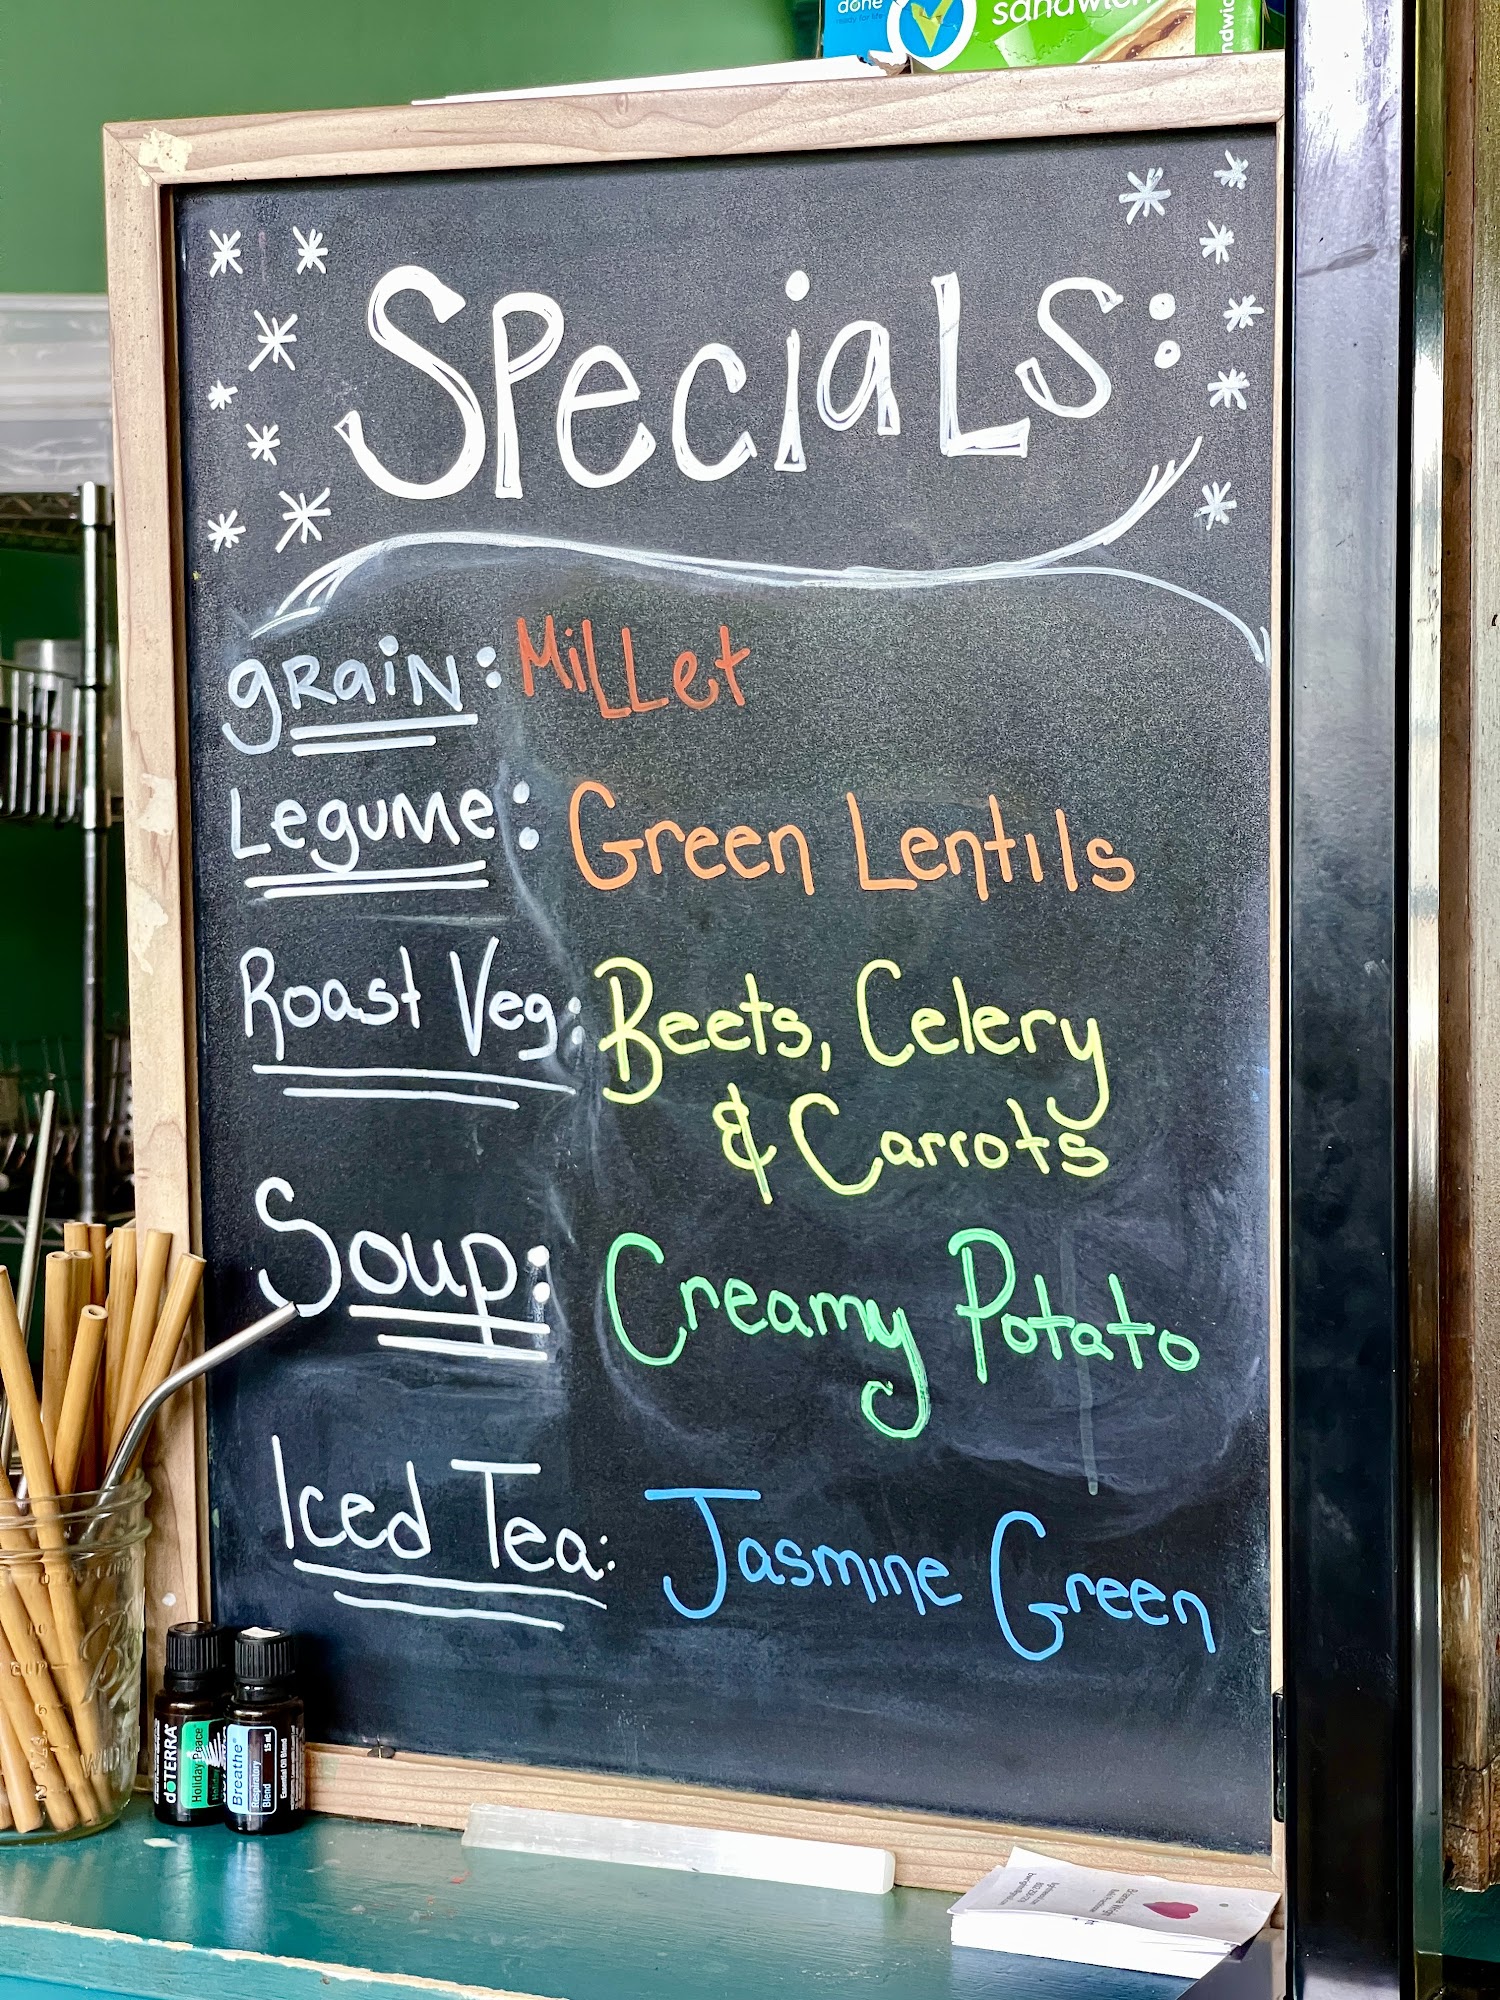 done
ready for life
sandwich
Specials:
grain: Millet
Legume: Green Lentils
Roast Veg: Beets, Celery
& Carrots
Soup: Creamy Potato
Iced Tea: Jasmine Green
dōTERRA
Holiday Peace
Breathe®
Respiratory
Blend
15 mL
Essential Oil Blend